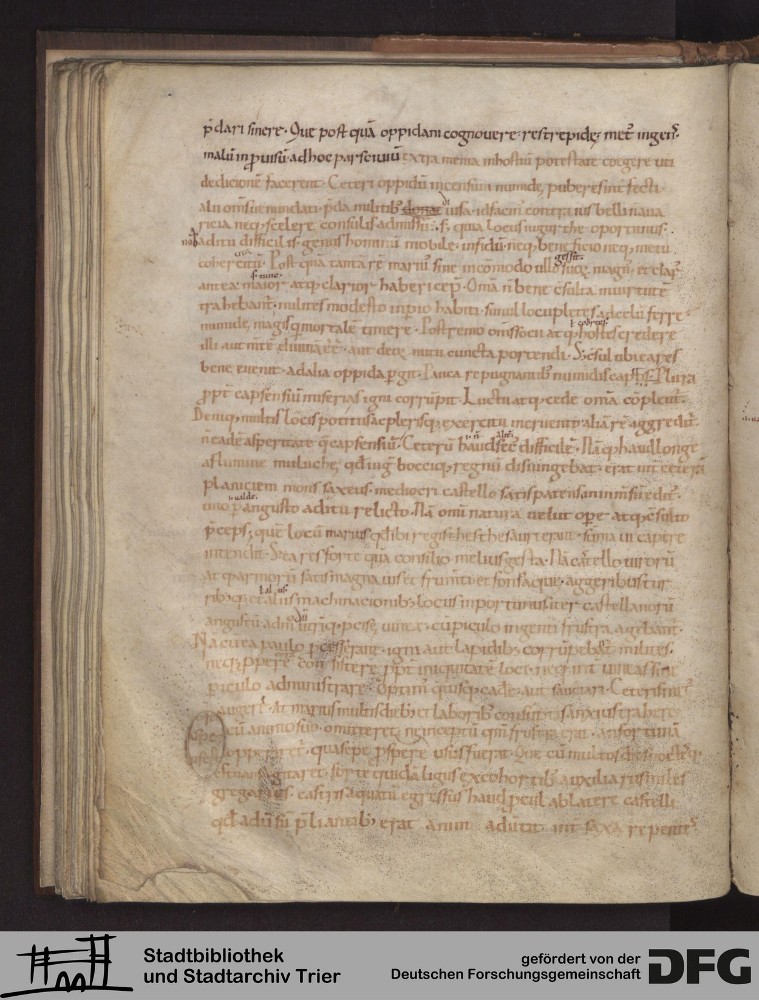 p̄dari sinere. Que post quā oppidani cognouere. res trepidę. met᷒ ingens.
malū inprouisū. ad hoc pars ciuiū extra menia in hostiū potestate. coegere uti
dedicionē facerent. Ceterū oppidū incensū. numidę puberes interfecti.
alii om̄s uenundati. p̄da militib; diuisa. id facin᷒ contra ius belli
neq; scelere consulis admissū. s; quia locus iugurthe oportunus.
nob aditu difficilis. genus hominū mobile. infidū. neq; beneficio neq; metu
cohercitū. Post quā tantā rē marius sine incōmodo ullo
antea. maior atq; clarior haberi cep̄. Om̄a n̄ bene c̄sulta in uirtutē
trahebant᷒. milites modesto inp̄io habiti. simul locupletes ad celū ferre.
numidę magis q̄ mortalē timere. Postremo om̄s socii atq; hostes credere
illi aut mentē diuinā eē. aut deoꝝ nutu cuncta portendi. S; c̄sul ubi ea res
bene euenit. ad alia oppida p̄git. Pauca repugnantib; numidis cap̄. Plura
p̄pt᷒ capsensiū miserias igni corrūpit. Luctu atq; cede om̄a cōplent᷒.
Deniq; multis locis potitus ac plerisq; exercitu incruento. aliā rē aggredit᷒.
n̄ eadē asperitate q̄ capsensiū. Ceterū haud sec᷒ difficilē. Nāq; haud longe
a flumine muluche, qd̄ iug᷒ bocciq; regnū disiungebat. erat int᷒ ceterā
planiciem mons saxeus. mediocri castello satis patens. in inm̄sū edit᷒.
uno p̄angusto aditu relicto. Nā om̄i natura uelut op̄e atq; c̄sulto
p̄ceps. quē locū marius qd̄ ibi regis thesauri erant. sūma ui capere
intendit. S; ea res forte quā consilio melius gesta. Nā castello uirorū
atq; armorū satis magna uis et frum̄ti et fons aque. aggeribus turribusq;
et aliis machinacionib; locus inportunus. iter castellanorū
angustū admodū utriq; p̄cisę. uineę cū piculo ingenti frustra agebant᷒.
Nā cū ea paulo p̄cesserant. igni aut lapidib; corrūpebant᷒. milites.
neq; p̄ opere consistere p̄pt᷒ iniquitatē loci. neq; int᷒ uineas sine
piculo administrare. Optim᷒ quisq; cadere aut sauciari. Ceteris met᷒
augeri. At marius multis dieb; et laborib; consūptis anxius trahere
cū animo suo. omitteret ne inceptū qm̄ frustra erat. an fortunā
opperiret᷒. qua sepe p̄spere usus fuerat. Que cū multos dies noctesq;
estuans agitaret. forte quidā ligus ex cohortib; auxiliariis miles
gregarius. castris aquatū egressus haud p̄cul ab latere castelli
qd̄ aduersū p̄liantib; erat animū aduertit. int᷒ saxa repentes
Stadtbibliothek
und Stadtarchiv Trier
gefördert von der
Deutschen Forschungsgemeinschaft
DFG